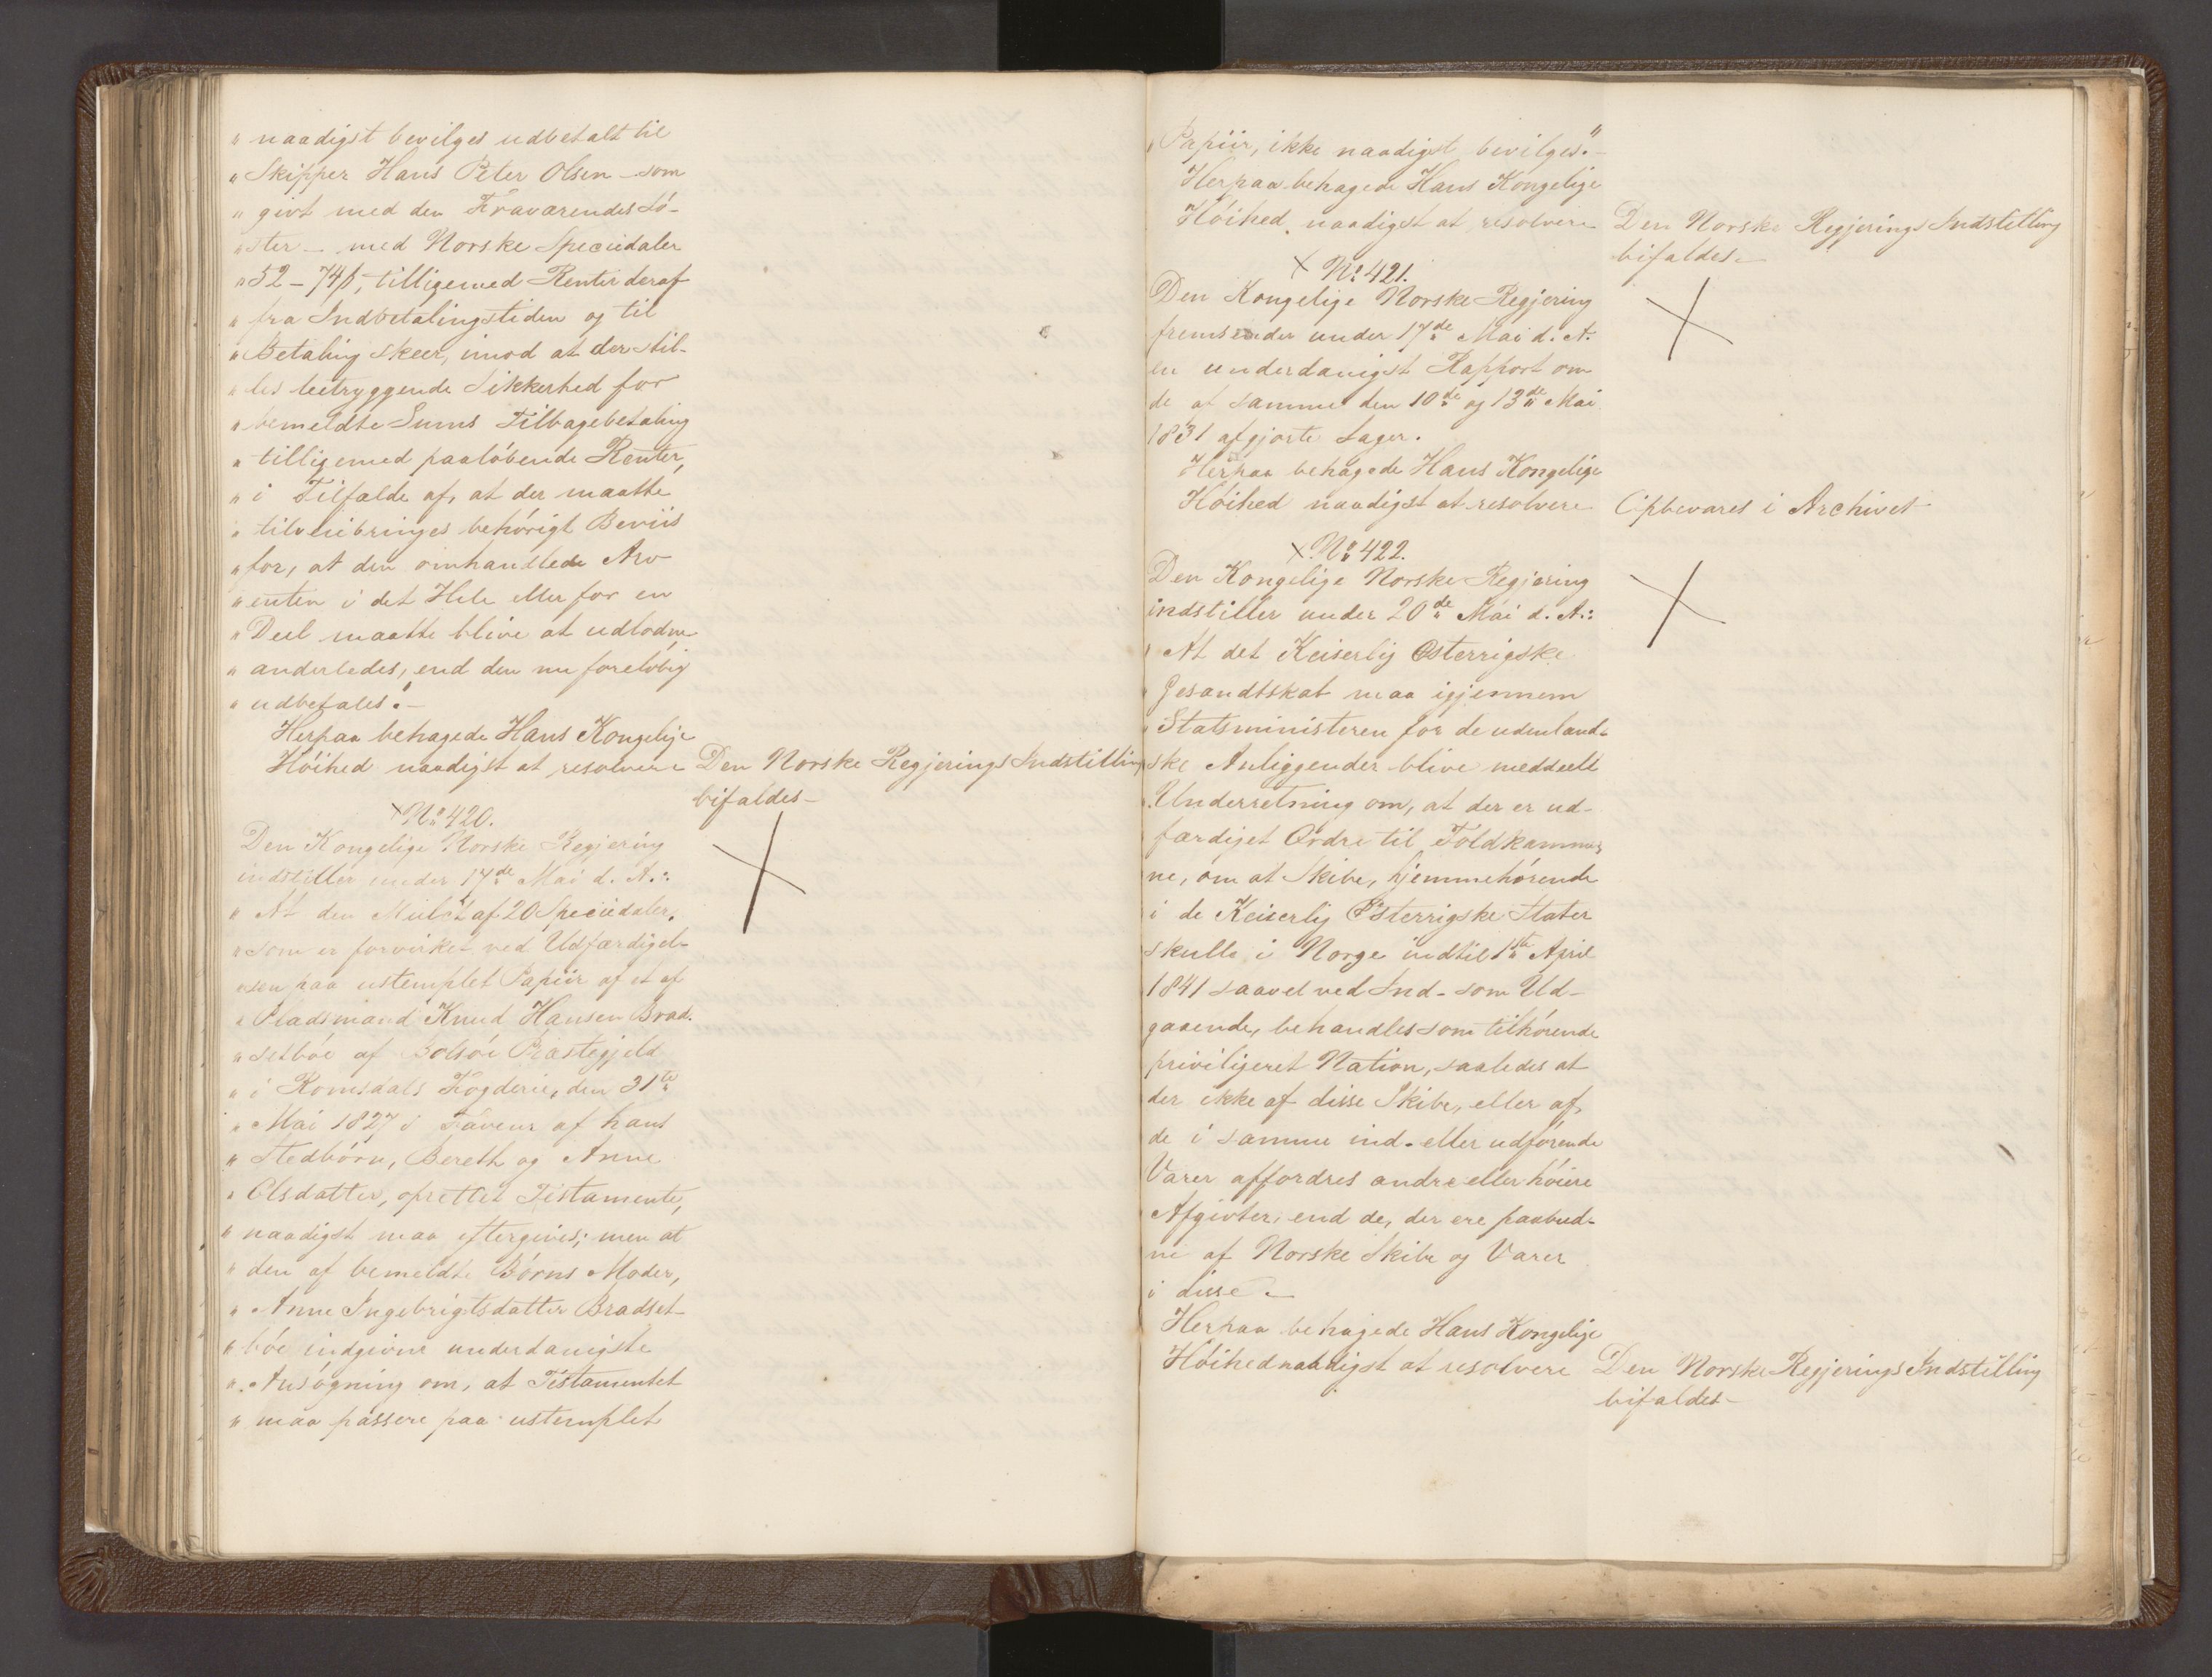 " naadigst bevilges udbetalt til
" Skipper Hans Peter Olsen – som
" givt med den Fraværendes Sö-
" ster – med Norske Speciedaler
" 52 – 74 β, tilligemed Renter deraf
" fra Indbetalingstiden og til
" Betaling skeer, imod at der stil-
" les betryggende Sikkerhed for
" bemeldte Sums Tilbagebetaling
" tilligemed paalöbende Renter,
" i Tilfælde af, at der maatte
" tilveiebringes behörigt Beviis
" for, at den omhandlede Arv
" enten i det Hele eller for en
" Deel maatte blive at udlodne
" anderledes, end den nu foreløbig
" udbetales." –
Herpaa behagede Hans Kongelige
Höihed naadigst at resolvere Den Norske Regjerings Indstilling
bifaldes –
× No 420.
Den Kongelige Norske Regjering
indstiller under 17de Mai d. A.:
" At den Mulct af 20 Speciedaler,
" som er forvirket ved Udfærdigel-
" sen paa ustemplet Papiir af et af
" Pladsmand Knud Hansen Brad-
" setböe af Bolsöe Præstegjeld
" i Romsdals Fogderie, den 31te
" Mai 1827 i Faveur af hans
" Stedbörn, Bereth og Anne
" Olsdatter, oprettet Testamente,
" naadigst maa eftergives; men at
" den af bemeldte Börns Moder,
" Anne Ingebrigtsdatter Bradset-
" böe indgivne underdanigste
" Ansögning om, at Testamentet
" maa passere paa ustemplet
" Papiir, ikke naadigst bevilges." –
Herpaa behagede Hans Kongelige
Höihed naadigst at resolvere Den Norske Regjerings Indstilling
bifaldes –
× No 421.
Den Kongelige Norske Regjering
fremsender under 17de Mai d. A.
en underdanigst Rapport om
de af samme den 10de og 13de Mai
1831 afgjorte Sager.
Herpaa behagede Hans Kongelige
Höihed naadigst at resolvere Opbevares i Archivet
× No 422.
Den Kongelige Norske Regjering
indstiller under 20de Mai d. A.:
" At det Keiserlig Østerrigske
" Gesandtskab maa igjennem
" Statsministeren for de udenland-
ske Anliggender blive meddeelt
Underretning om, at der er ud-
færdiget Ordre til Toldkamre-
ne, om at Skibe, hjemmehörende
i de Keiserlig Østerrigske Stater
skulle i Norge indtil 1ste April
1841 saavel ved Ind- som Ud-
gaaende, behandles som tilhörende
priviligeret Nation, saaledes at
der ikke af disse Skibe, eller af,
de i samme ind- eller udförende
Varer affordres andre eller höiere
Afgivter, end de, der ere paabud-
ne af Norske Skibe og Varer
i disse. –
Herpaa behagede Hans Kongelige
Höihed naadigst at resolvere Den Norske Regjerings Indstilling
bifaldes –